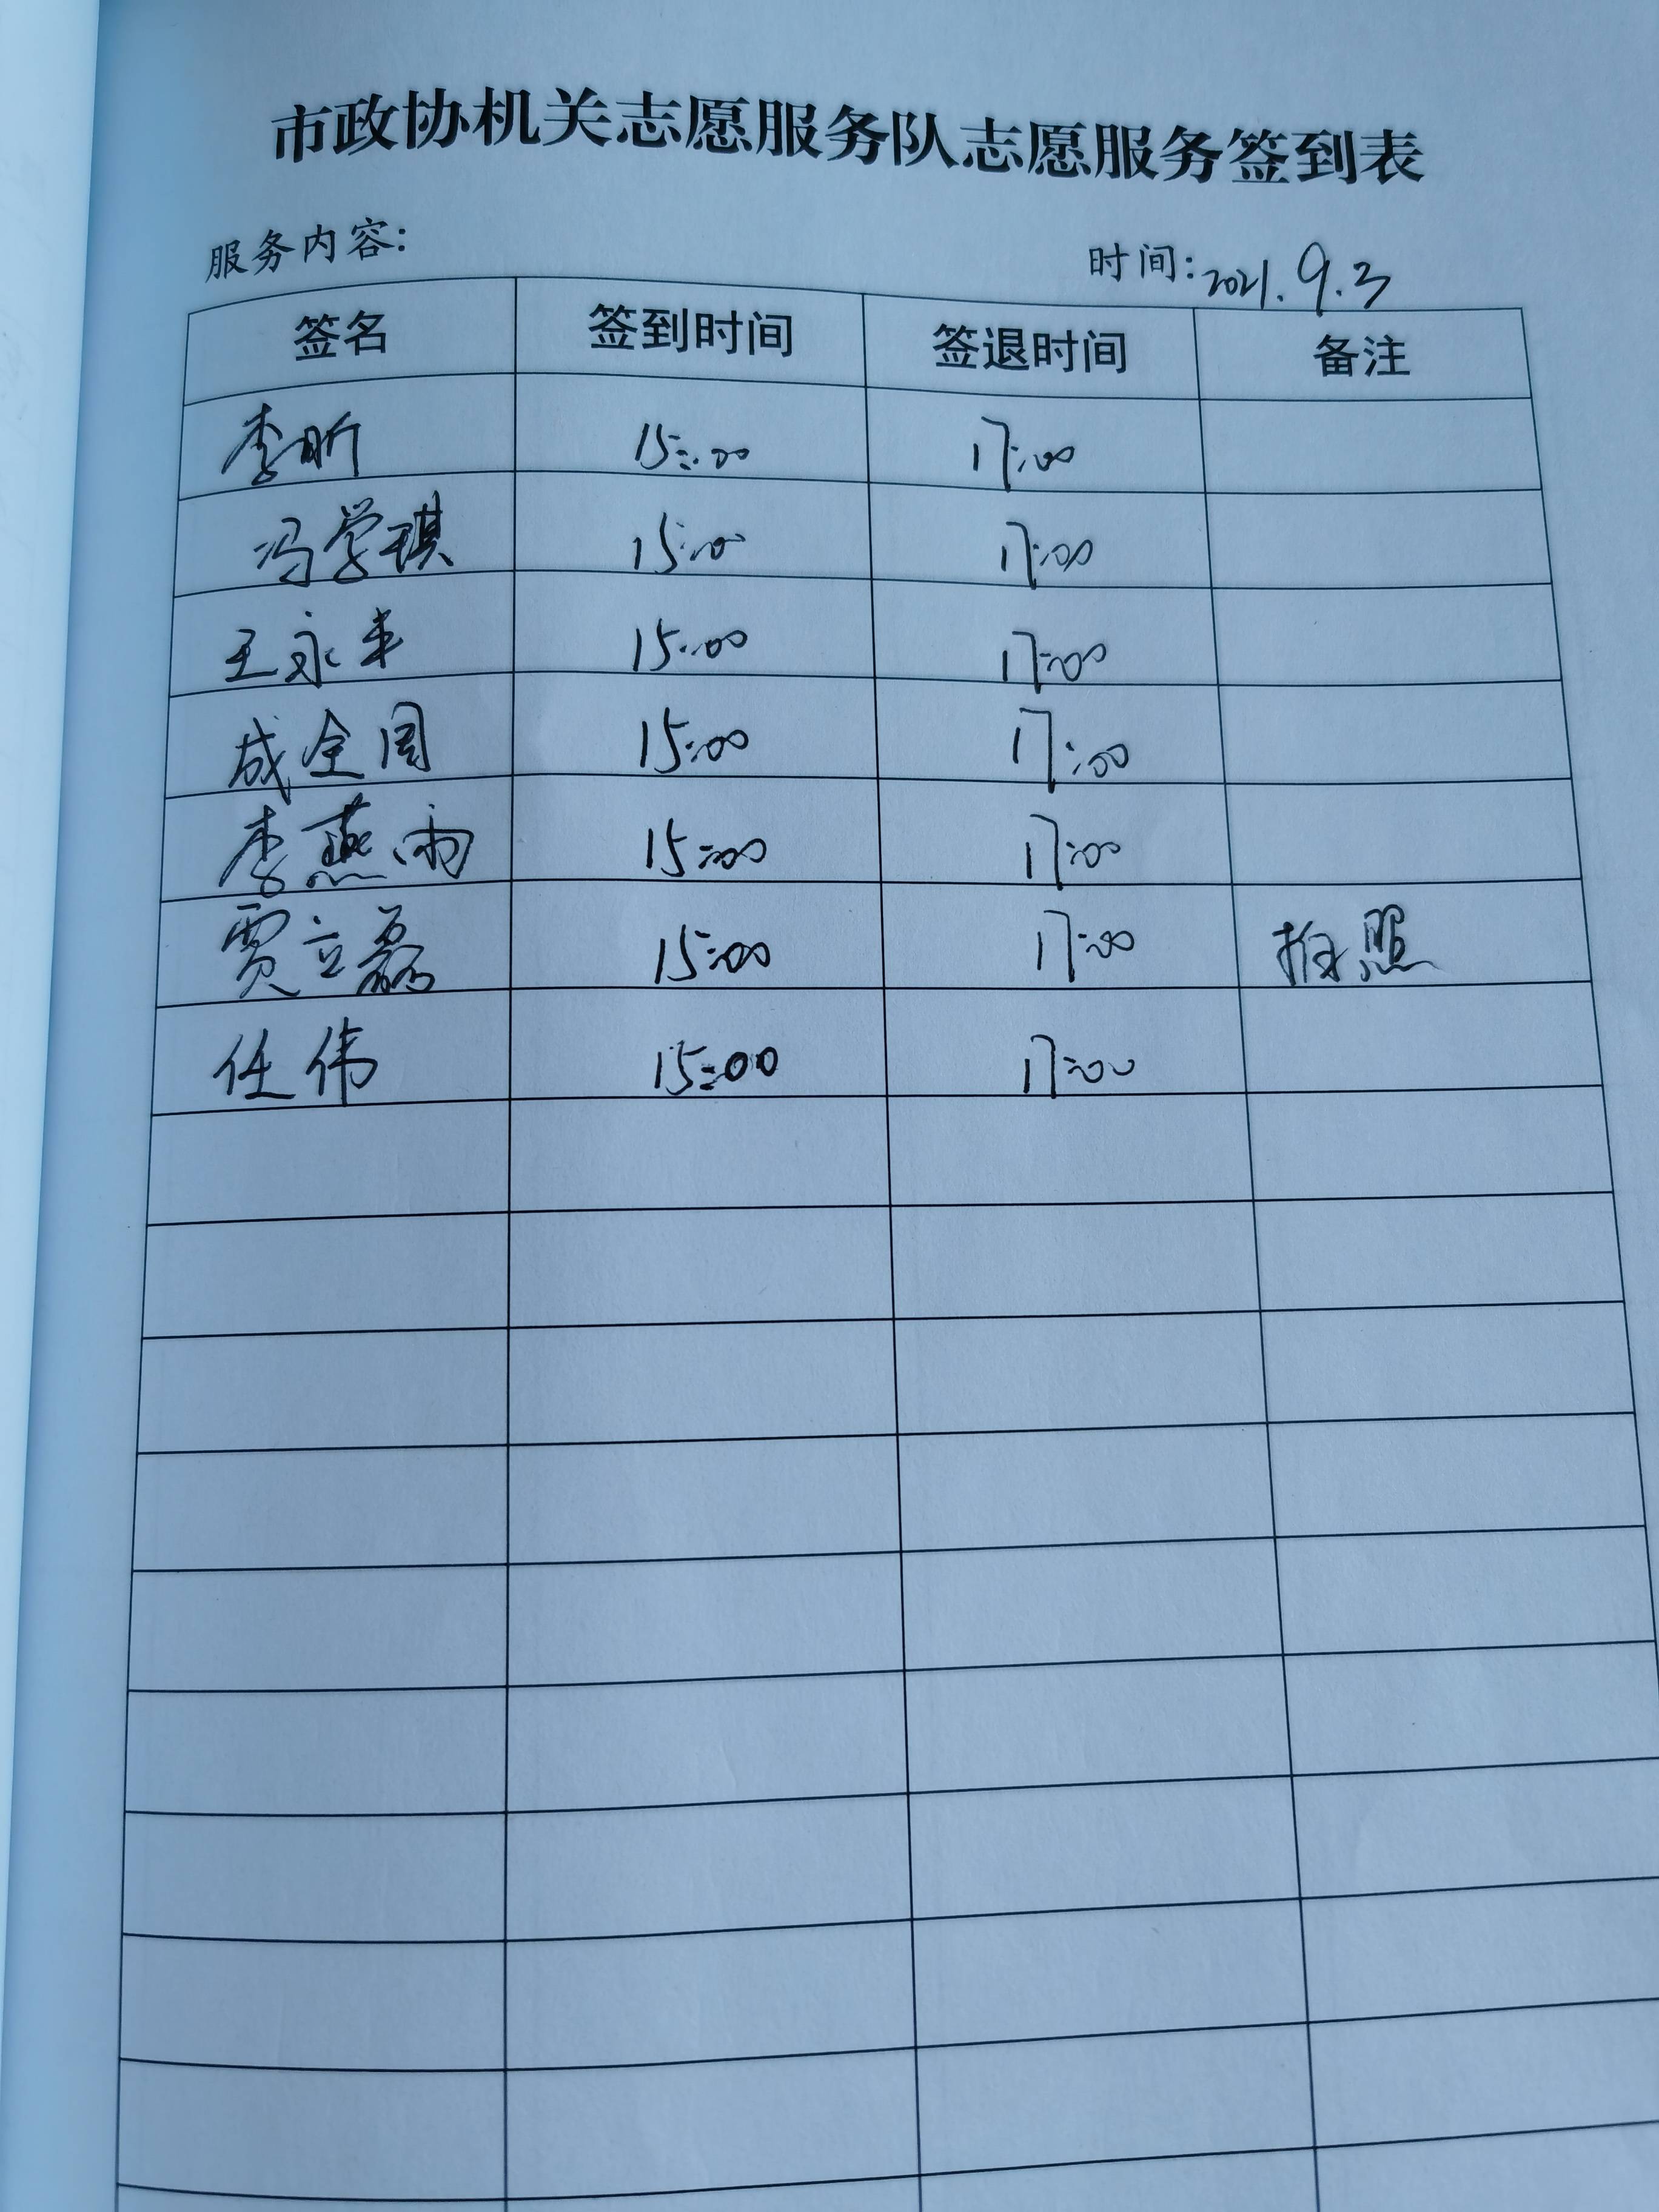 市政协机关志愿服务队志愿服务签到表
服务内容: 时间:2021.9.3
签名 签到时间 签退时间 备注
李昕 15:00 17:00
冯学琪 15:00 17:00
王永丰 15:00 17:00
成全国 15:00 17:00
李燕雨 15:00 17:00
贾立磊 15:00 17:00 拍照
任伟 15:00 17:00